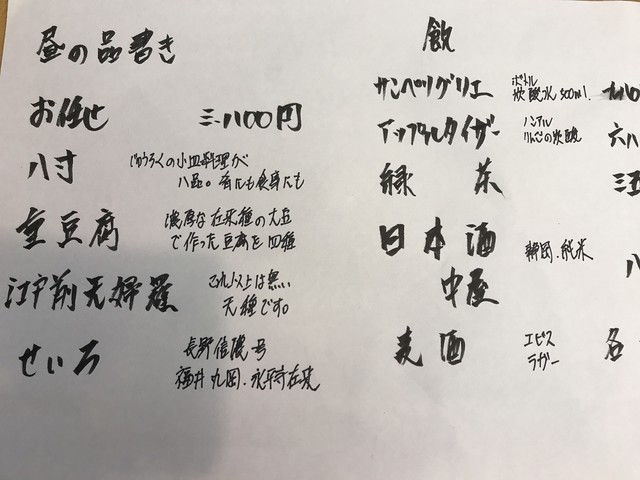 昼の品書き
お任せ 三・八〇〇円
八寸 じゅうろくの小皿料理が
八品。肴にも食事にも
重豆腐 濃厚な在来種の大豆
で作った豆腐を四種
江戸前天婦羅 これ以上は無い
天種です。
せいろ 長野信濃一号
福井丸岡・永平寺在来
飲
サンペリグリエ ボトル
炭酸水 500ml.
アップルタイザー ノンアル
りんごの炭酸 六八
緑茶 三五
日本酒 静岡・純米 八
中屋
麦酒 エビス
ラガー 各